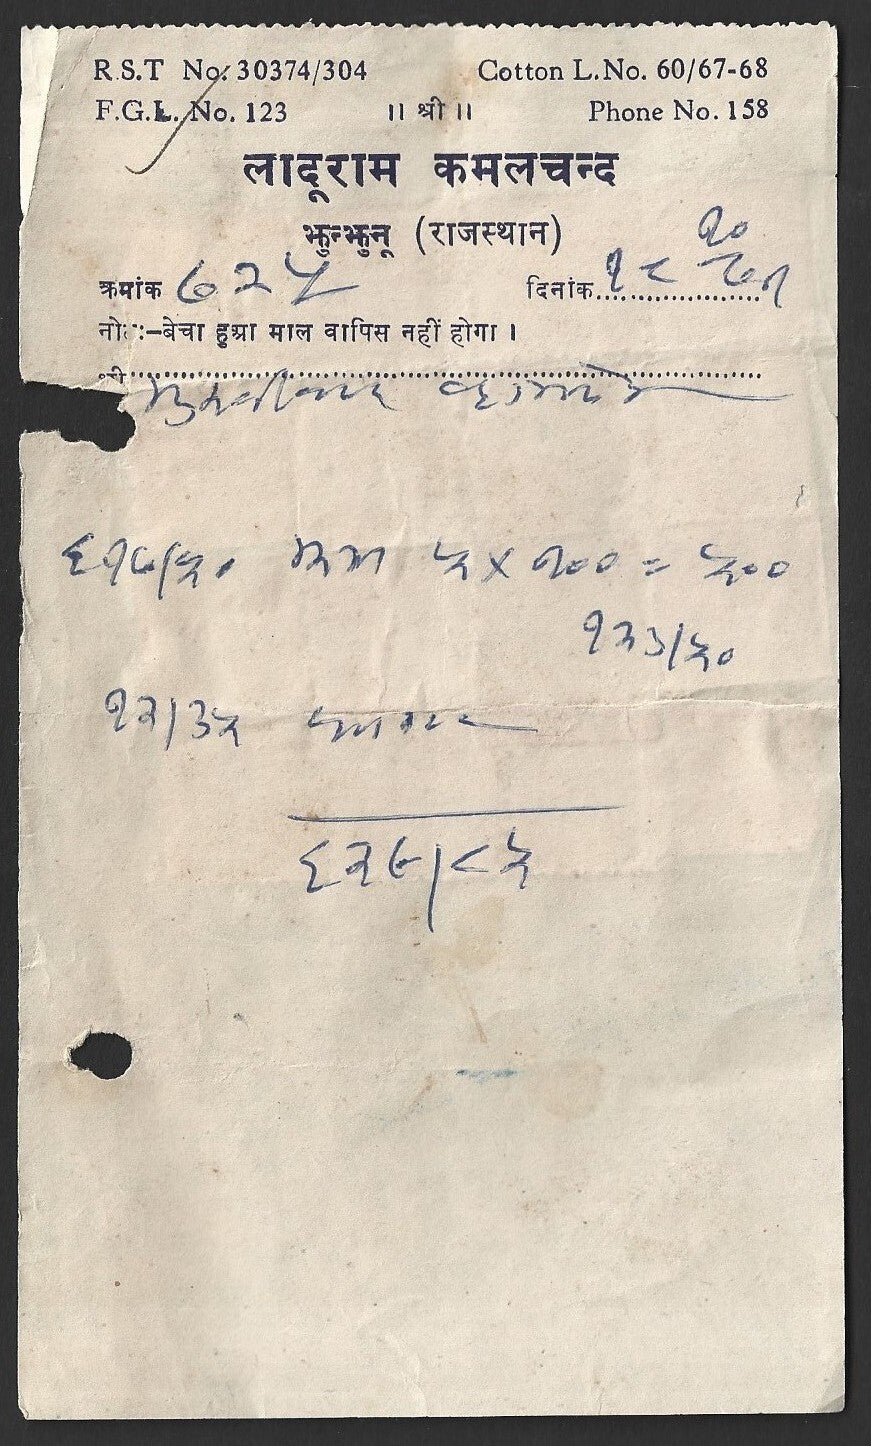 R.S.T No. 30374/304 Cotton L.No. 60/67-68
F.G.L. No. 123 ॥ श्री ॥ Phone No. 158
लादूराम कमलचन्द
झुन्झुनू (राजस्थान)
क्रमांक 625 दिनांक १८
नोट:-बेचा हुआ माल वापिस नहीं होगा ।
श्री
६१७/५० ५ × १०० = ५००
१२३/५०
१२/३५
६२९/८५